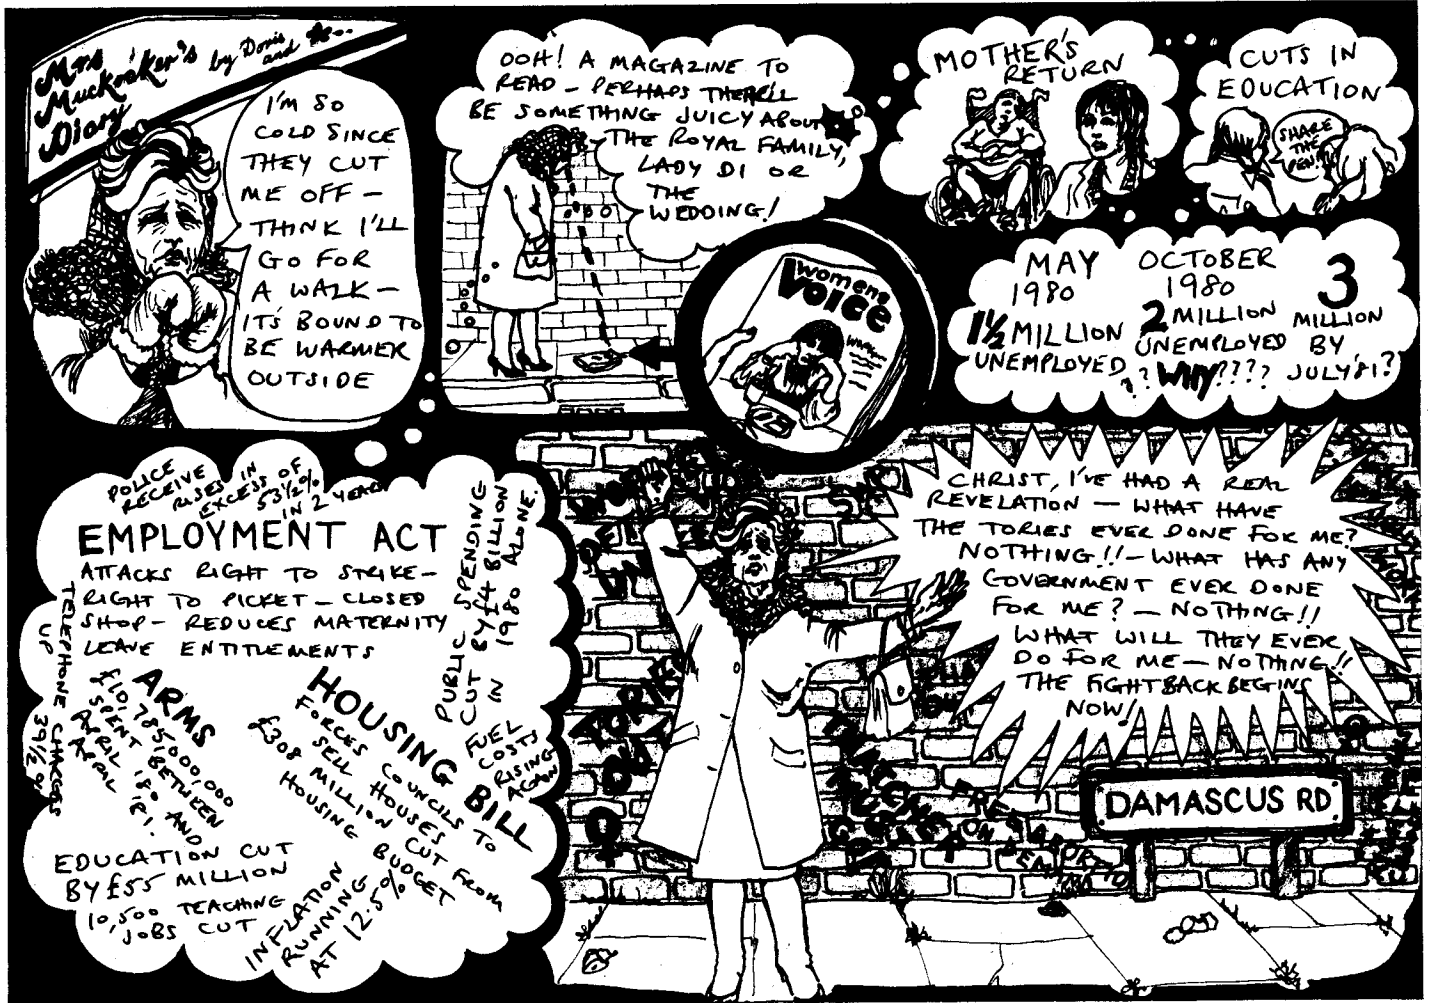 Mrs
Muckraker's
Diary
by Doris
and
I'M SO
COLD SINCE
THEY CUT
ME OFF –
THINK I'LL
GO FOR
A WALK –
IT'S BOUND TO
BE WARMER
OUTSIDE
OOH! A MAGAZINE TO
READ – PERHAPS THERE'LL
BE SOMETHING JUICY ABOUT
THE ROYAL FAMILY,
LADY DI OR
THE
WEDDING!
womens
Voice
MOTHER'S
RETURN
CUTS IN
EDUCATION
SHARE
THE
PEN!!
MAY
1980
1½ MILLION
UNEMPLOYED
OCTOBER
1980
2 MILLION
UNEMPLOYED
?? WHY????
3
MILLION
BY
JULY '81?
POLICE
RECEIVE
RISES IN
EXCESS OF
53½%
IN 2 YEARS
EMPLOYMENT ACT
ATTACKS RIGHT TO STRIKE –
RIGHT TO PICKET – CLOSED
SHOP – REDUCES MATERNITY
LEAVE ENTITLEMENTS
PUBLIC SPENDING
CUT BY £4 BILLION
IN 1980 ALONE.
TELEPHONE CHARGES
UP 39½%
ARMS
£10,785,000,000
SPENT BETWEEN
APRIL '80 AND
APRIL '81.
HOUSING BILL
FORCES COUNCILS TO
SELL HOUSES
£308 MILLION CUT FROM
HOUSING BUDGET
FUEL
COSTS
RISING
AGAIN
EDUCATION CUT
BY £55 MILLION
10,500 TEACHING
JOBS CUT
INFLATION
RUNNING
AT 12.5%
CHRIST, I'VE HAD A REAL
REVELATION – WHAT HAVE
THE TORIES EVER DONE FOR ME?
NOTHING!! – WHAT HAS ANY
GOVERNMENT EVER DONE
FOR ME? – NOTHING!!
WHAT WILL THEY EVER
DO FOR ME – NOTHING!!
THE FIGHTBACK BEGINS
NOW!
TORIES
OUT
FREE ABORTION
ON DEMAND
DAMASCUS RD